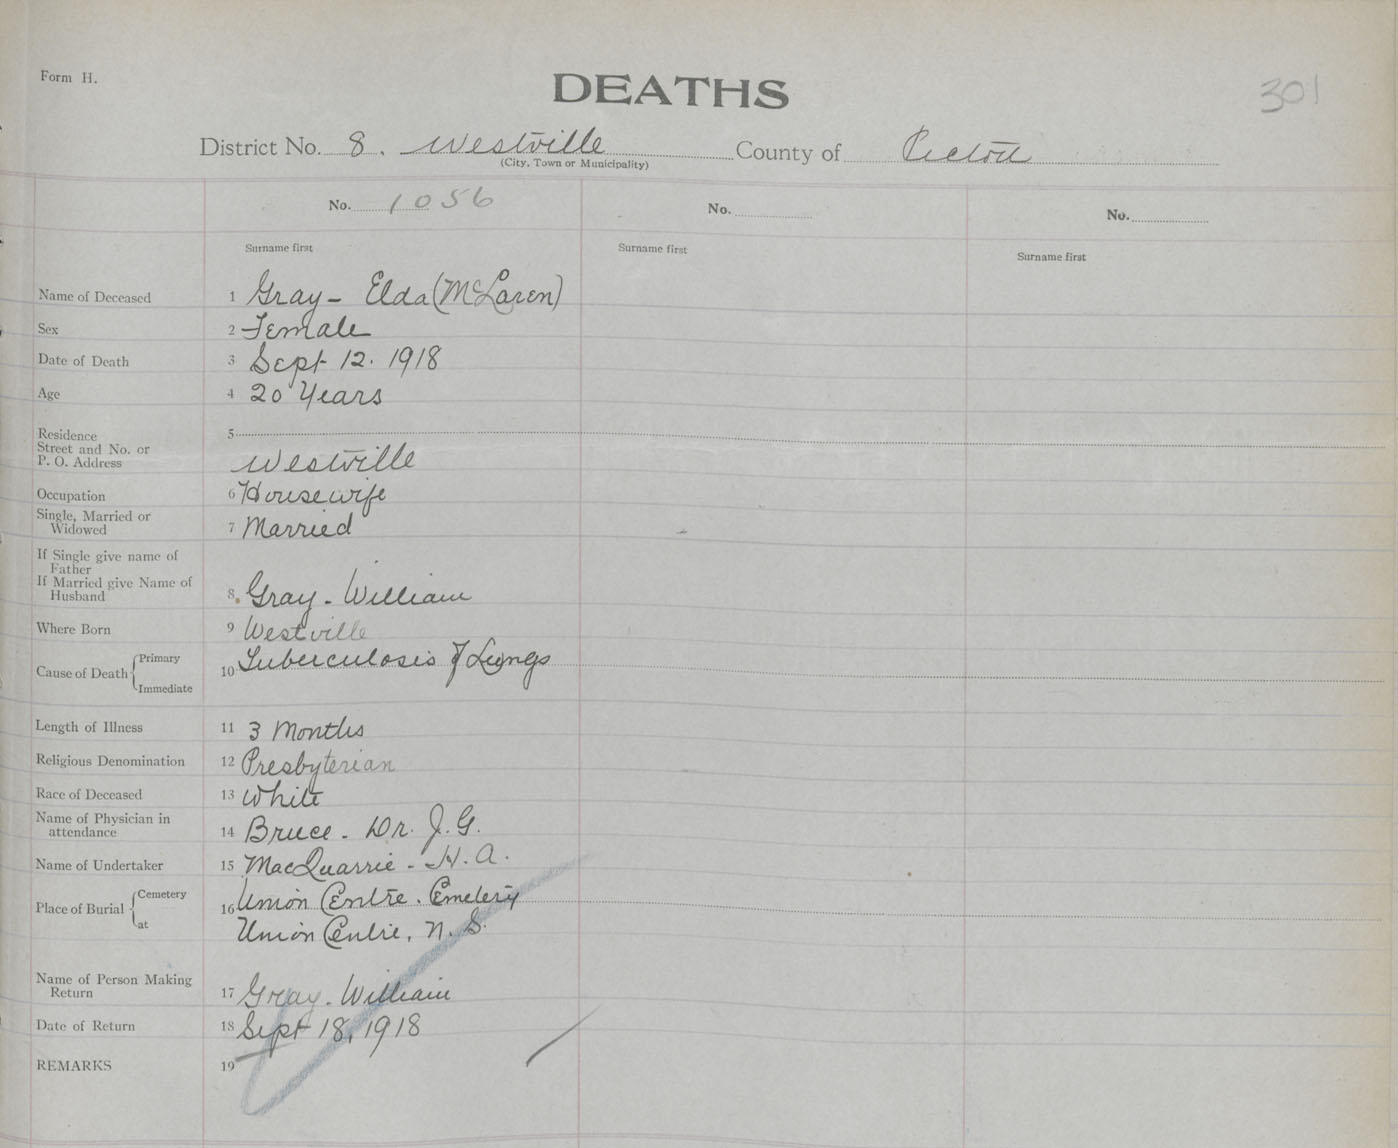 Form H.
DEATHS
301
District No. 8. Westville County of Pictou
(City, Town or Municipality)
No. 1056 No. No.
Surname first Surname first Surname first
Name of Deceased 1 Gray - Elda (McLaren)
Sex 2 Female
Date of Death 3 Sept 12. 1918
Age 4 20 Years
Residence 5
Street and No. or
P. O. Address Westville
Occupation 6 Housewife
Single, Married or
Widowed 7 Married
If Single give name of
Father
If Married give Name of
Husband 8. Gray - William
Where Born 9 Westville
Cause of Death Primary 10 Tuberculosis of Lungs
Immediate
Length of Illness 11 3 Months
Religious Denomination 12 Presbyterian
Race of Deceased 13 White
Name of Physician in
attendance 14 Bruce - Dr. J. G.
Name of Undertaker 15 MacQuarrie - H. A.
Place of Burial Cemetery 16 Union Centre. Cemetery
at Union Centre, N. S.
Name of Person Making
Return 17 Gray - William
Date of Return 18 Sept 18, 1918
REMARKS 19